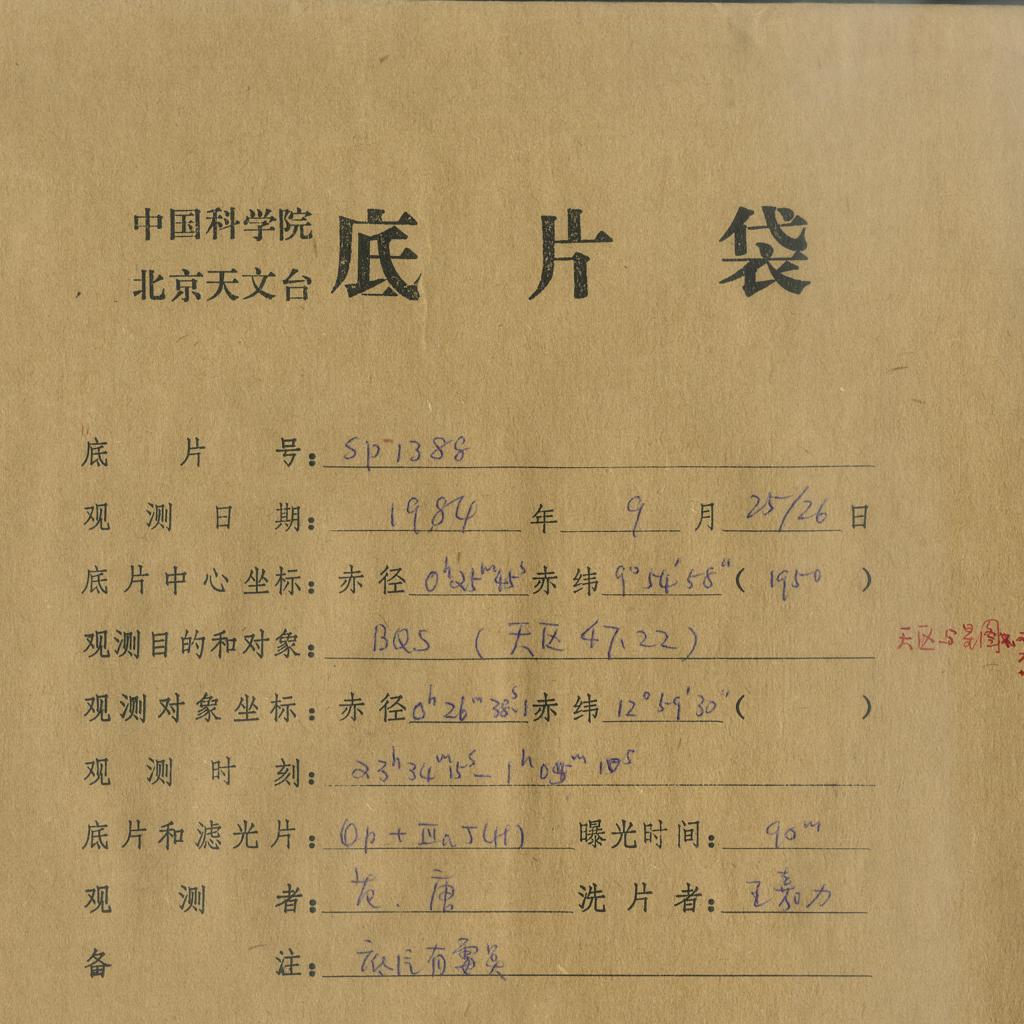 中国科学院
北京天文台 底片袋
底片号: Sp1388
观测日期: 1984年9月25/26日
底片中心坐标: 赤径 0h25m45s 赤纬 9°54′58″ (1950)
观测目的和对象: BQS (天区47.22) 天区与星图
观测对象坐标: 赤径 0h26m38s.1 赤纬 12°59′30″ ( )
观测时刻: 23h34m15s - 1h05m10s
底片和滤光片: Op + IIIaJ(H) 曝光时间: 90m
观测者: 范.唐 洗片者: 王嘉力
备注: 底片有雾